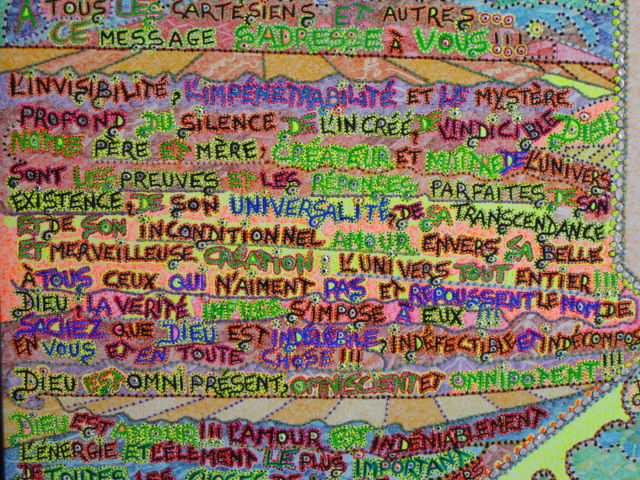 À TOUS LES CARTÉSIENS ET AUTRES...
CE MESSAGE S'ADRESSE À VOUS!!!
L'INVISIBILITÉ, L'IMPÉNÉTRABILITÉ ET LE MYSTÈRE
PROFOND DU SILENCE DE L'INCRÉÉ, DE L'INDICIBLE DIEU
NOTRE PÈRE ET MÈRE, CRÉATEUR ET MAÎTRE DE L'UNIVERS
SONT LES PREUVES ET LES RÉPONSES PARFAITES DE SON
EXISTENCE, DE SON UNIVERSALITÉ, DE SA TRANSCENDANCE
ET DE SON INCONDITIONNEL AMOUR ENVERS SA BELLE
ET MERVEILLEUSE CRÉATION: L'UNIVERS TOUT ENTIER!!!
À TOUS CEUX QUI N'AIMENT PAS ET REPOUSSENT LE NOM DE
DIEU, LA VÉRITÉ S'IMPOSE À EUX!!!
SACHEZ QUE DIEU EST INDÉLÉBILE, INDÉFECTIBLE ET
EN VOUS ET EN TOUTE CHOSE!!!
DIEU EST OMNIPRÉSENT, OMNISCIENT ET OMNIPOTENT!!!
DIEU EST AMOUR!!! L'AMOUR EST INDÉNIABLEMENT
L'ÉNERGIE ET L'ÉLÉMENT LE PLUS IMPORTANT
DE TOUTES LES CHOSES DE